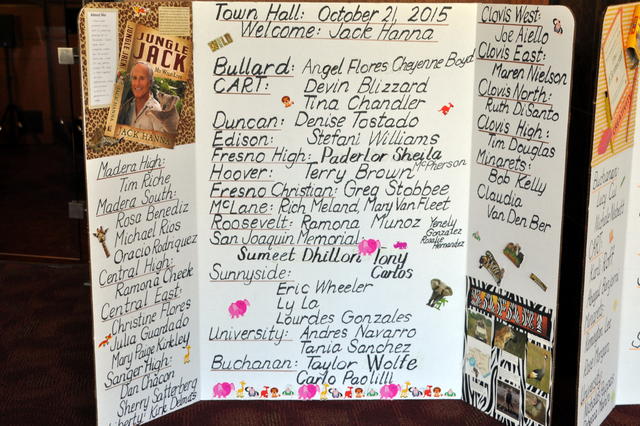 About Me
JUNGLE
JACK
My Wild Life
JACK HANNA
Madera High:
Tim Riche
Madera South:
Rosa Benediz
Michael Rios
Oracio Rodriquez
Central High:
Ramona Cheek
Central East:
Christine Flores
Julia Guardado
Mary Paige Kirkley
Sanger High:
Dan Chacon
Sherry Satterberg
Liberty: Kirk Delmas
Town Hall: October 21, 2015
Welcome: Jack Hanna
WILD
Bullard: Angel Flores Cheyenne Boyd
CART: Devin Blizzard
Tina Chandler
Duncan: Denise Tostado
Edison: Stefani Williams
Fresno High: Paderlor Sheila McPherson
Hoover: Terry Brown
Fresno Christian: Greg Stobbee
McLane: Rich Meland, Mary Van Fleet
Roosevelt: Ramona Munoz Yenely Gonzalez Rosalie Hernandez
San Joaquin Memorial
Sumeet Dhillon Tony Carlos
Sunnyside:
Eric Wheeler
Ly La
Lourdes Gonzales
University: Andres Navarro
Tania Sanchez
Buchanan: Taylor Wolfe
Carlo Paolilli
Clovis West:
Joe Aiello
Clovis East:
Maren Nielson
Clovis North:
Ruth DiSanto
Clovis High:
Tim Douglas
Minarets:
Bob Kelly
Claudia
Van Den Ber
Buchanan: